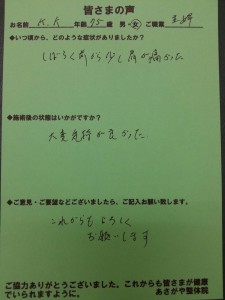 皆さまの声
お名前 K.K 年齢 75才 男・女 ご職業 主婦
◆いつ頃から、どのような症状がありましたか?
しばらく前から少し肩が痛かった
◆施術後の状態はいかがですか?
大変気持が良かった.
◆ご意見・ご要望などしたら、ご記入お願い致します。
これからもよろしく
お願いします
ご協力ありがとうございました。これからも皆さまが健康
でいられますように。
あさがや整体院